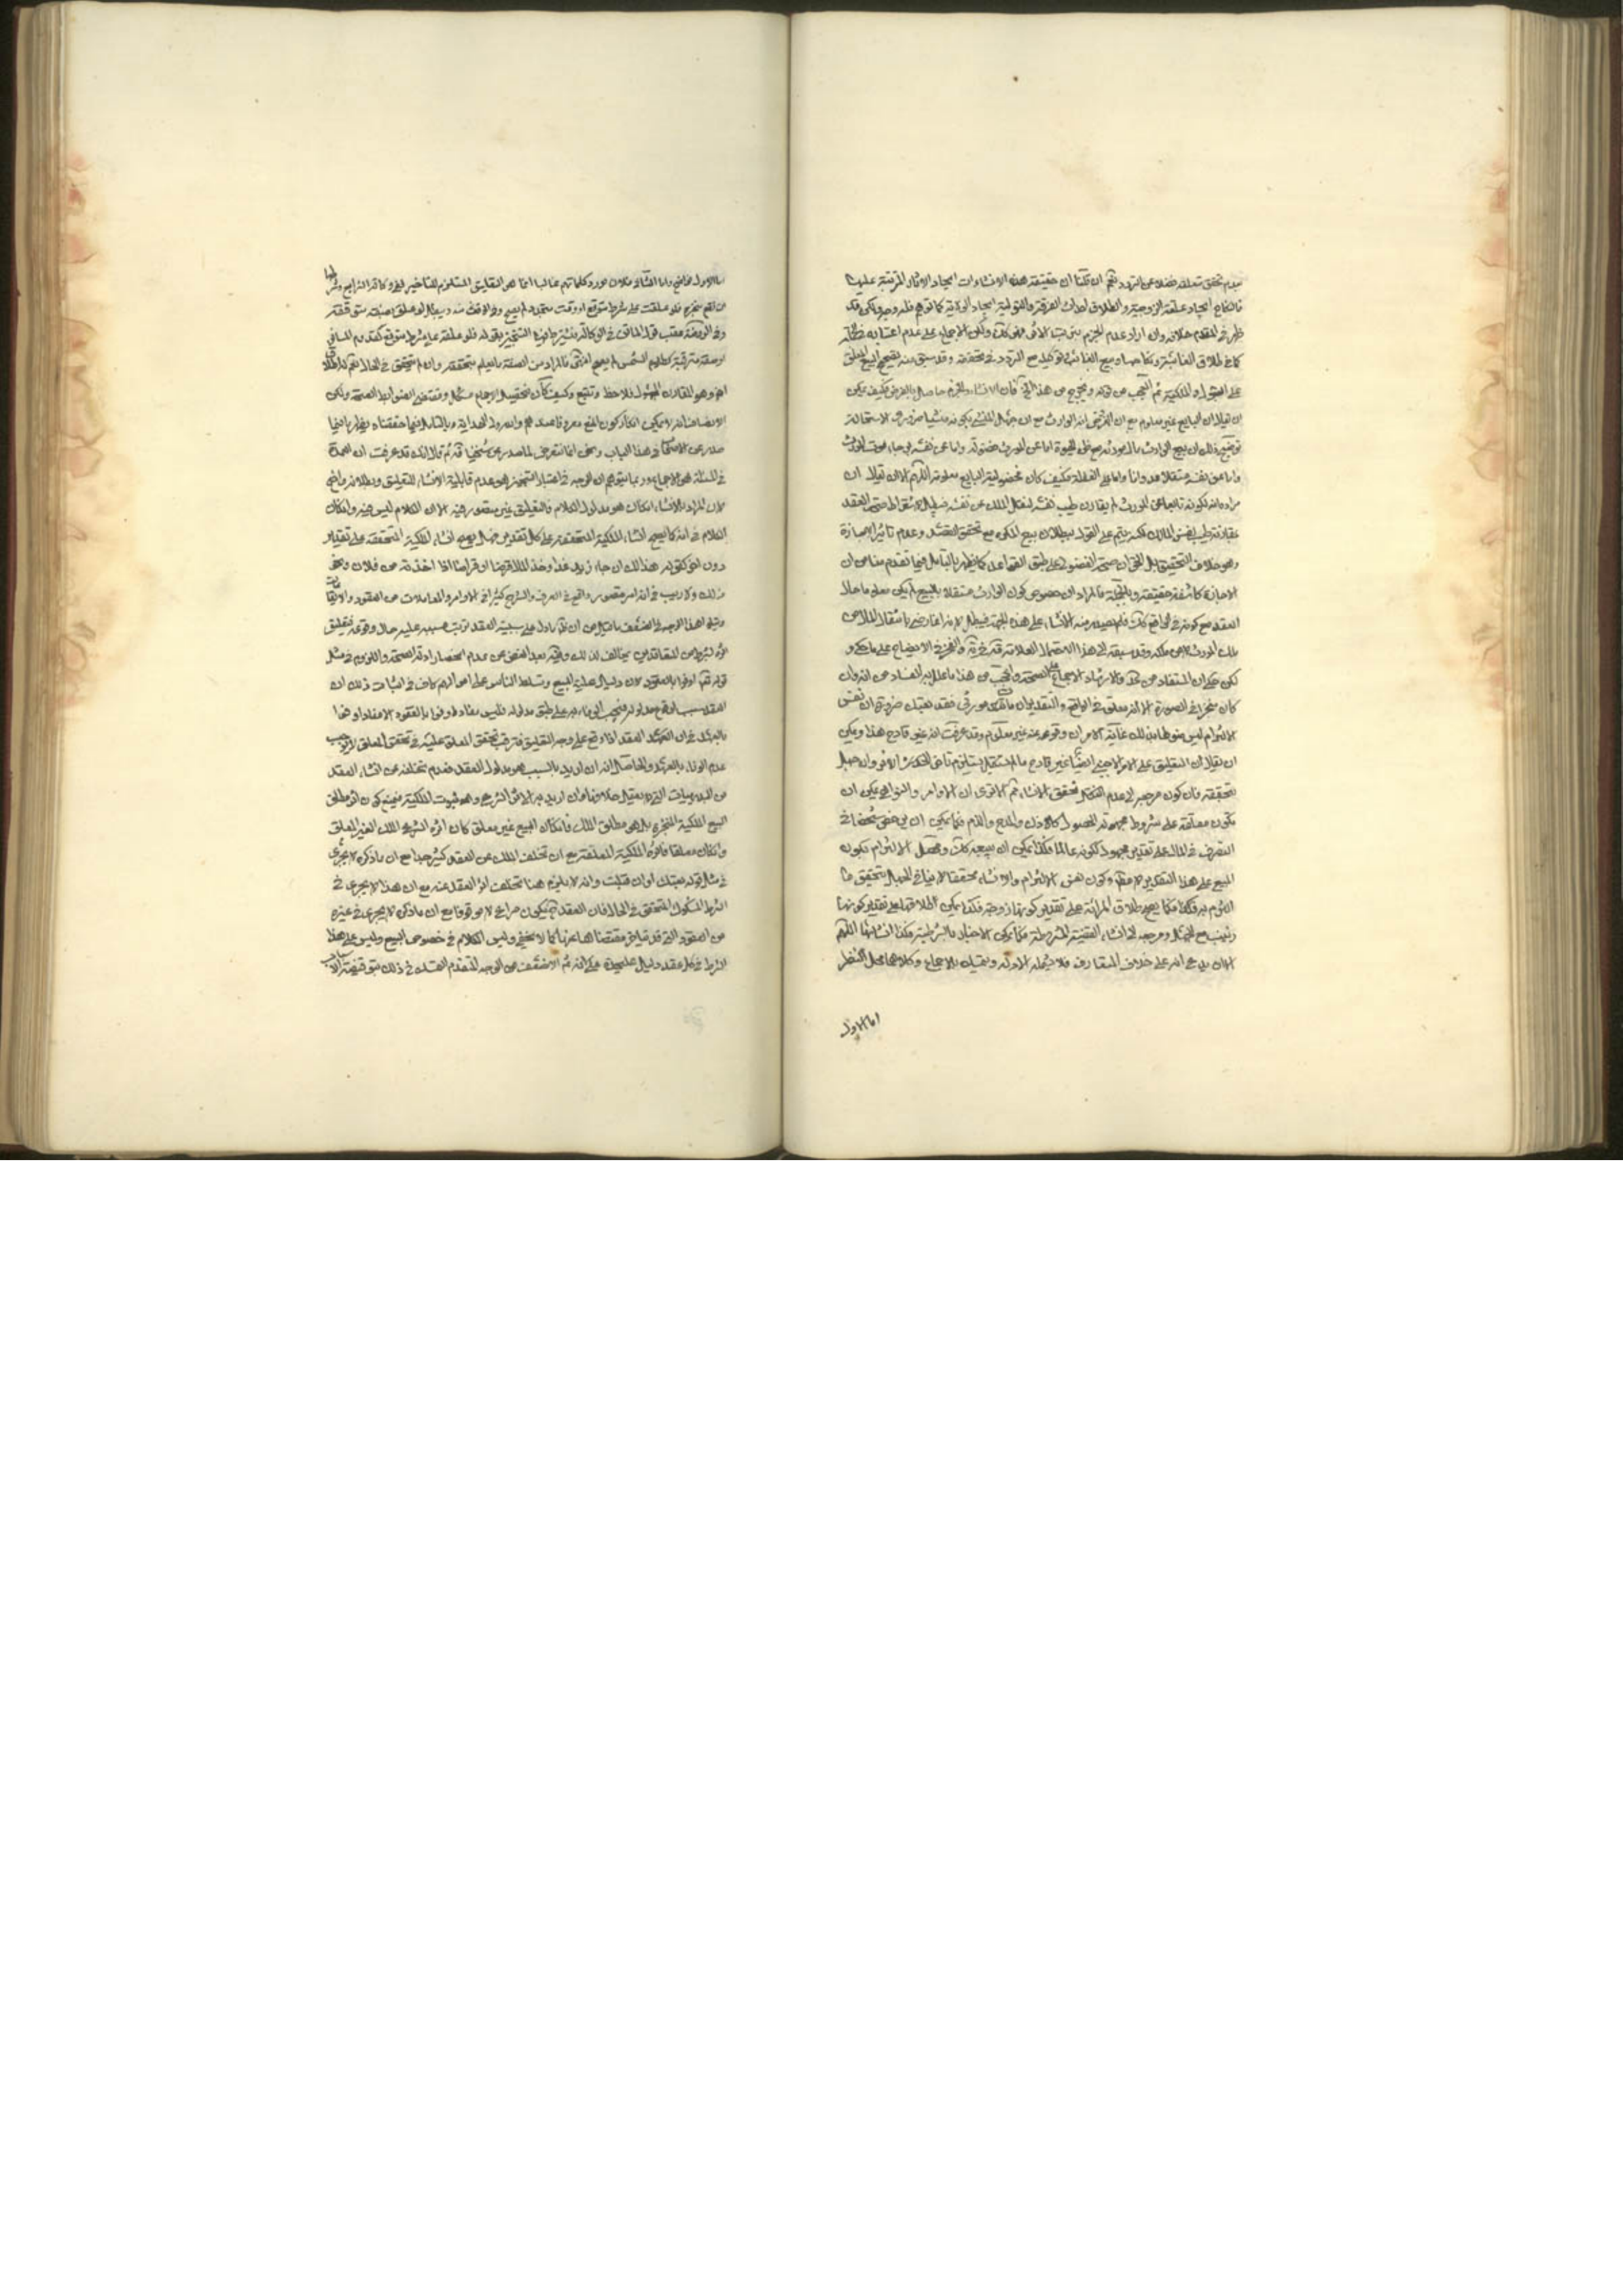 بعدم تحقق متعلقه فضلا عن التردد ثم ان قلنا ان حقيقة هذه الانشاءات ايجاد الاثار المترتبة عليها
فالنكاح ايجاد علقة الزوجية والطلاق احداث الفرقة والتولية ايجاد الولاية كما توهم فله وجه ولكن قد
ظهر في المقدم خلافه وان اراد عدم الجزم بترتب الاثر فهو كك ولكن الاجماع على عدم اعتباره
كما في طلاق الغائب وبيع الغائب مع التردد في تحققه وقد سبق منه تصحيح البيع المعلق
على القبول او الملكية ثم العجب من قوله فان الانشاء والجزم حاصل بالفرض فكيف يمكن
ان يقال ان البايع غير معلوم مع ان الفرض انه الوارث مع ان جهل المنشئ بكونه منشيا ضروري الاستحالة
توضيح ذلك ان بيع الوارث مال مورثه مع ظن الحيوة اما عن المورث فضولة واما عن نفسه
واما عن نفسه مستقلا عدوانا واما مع الغفلة فكيف كان فمدلولية البايع معلومة اللهم الا ان يقال ان
مراده انه لكونه تابعا عن المورث لم يقارن طيب نفسه لنقل الملك عن نفسه فيبطل لاشتراط صحة العقد
بمقارنة طيب نفس المالك لكنه يتم على القول ببطلان بيع المكره مع تحقق القصد وعدم تاثير الاجازة
وهو خلاف التحقيق بل الحق ان صحة الفضولي على طبق القواعد كما يظهر بالتامل فيما تقدم منا من ان
الاجازة كاشفة حقيقة وبالجملة فالمراد ان خصوص كون الوارث مستقلا بالبيع لم يكن معلوما حال
العقد مع كونه في الواقع كك فلم يصدر منه الانشاء على هذه الجهة فيبطل لا انه انما رضى بانتقال المال من
ملك المورث لا من ملكه وقد سبقه الى هذا الاحتمال العلامة قده في ير والفخر في الايضاح على ما حكى و
لكن حكى ان المستفاد من كره والارشاد الاجماع على الصحة والعجب من هذا ما علل به الفساد من انه وان
كان منجزا في الصورة الا انه معلق في الواقع والتقدير ان مات مورثى فقد بعتك ضرورة ان نفس
الالتزام ليس منوطا بذلك غاية الامر ان وقوعه عنه غير معلوم وقد عرفت انه غير قادح هذا ويمكن
ان يقال ان التعليق على الامر الاجنبي ايضا غير قادح ما لم يستقبل يستلزم تاخر
بتحققه فان كون مرجعه الى عدم تحقق الانشاء ثم الا ترى ان الاوامر والنواهى يمكن ان
تكون معلقة على شروط مجهولة الحصول كالاذن والمدح والذم فكما يمكن ان يرخص شخصا في
التصرف في المال على تقدير مجهول ككونه عالما فكذا يمكن ان يبيعه كك ومحصل الالتزام بكون
المبيع على هذا التقدير لا مطلقا وكون نفس الالتزام والانشاء محققا لا ينافي الجهل بتحقق ما
التزم به فكما يصح طلاق المرئة على تقدير كونها زوجة فكذا يمكن اطلاقها على تقدير كونها
زينب مع الجهل ومرجعه الى انشاء القضية المشروطة فكما يمكن الاخبار بالشرطية فكذا انشائها اللهم
الا ان يدعى انه على خلاف المتعارف فلا يشمله الادلة ويتمسك بالاجماع وكلاهما محل النظر
اما الاول
اما الاول فواضح واما الثاني فلان مورد كلماتهم غالبا انما هو التعليق المستلزم للتاخير
من وقع منجزه فلو علقت على شرط متوقع او وقت متجدد لم يصح
وفي الروضة عقب قول الماتن في الوكالة يشترط فيها التنجيز بقوله فلو علقت على شرط متوقع كقدوم المسافر
او صفة مترقبة كطلوع الشمس لم يصح انتهى فالمراد من الصفة ما يعلم بتحققه وان لم يتحقق في الحال
وهو المقارن المجهول فلاحظ وتتبع وكيف كان فتحصيل الاجماع مشكل ومقتضى الضوابط الصحة ولكن
الانصاف انه لا يمكن انكار كون المنع معروفا عندهم والله ولي الهداية وبالتامل فيما حققناه يظهر ما فيما
صدر عن الاصحاب في هذا الباب ونحن انما نتعرض لما صدر عن شيخنا قده ثم قال انك قد عرفت ان العمدة
في المسئلة هو الاجماع وربما يتوهم ان الوجه في اعتبار التنجيز هو عدم قابلية الانشاء للتعليق وبطلانه واضح
لان المراد بالانشاء ان كان هو مدلول الكلام فالتعليق غير متصور فيه الا ان الكلام ليس فيه وان كان
الكلام في انه كما يصح انشاء الملكية المتحققة على كل تقدير فهل يصح انشاء الملكية المتحققة على تقدير
دون اخر كقوله هذا لك ان جاء زيد غدا وخذ المال قرضا او قراضا اذا اخذته من فلان ونحو
ذلك ولا ريب في انه امر متصور واقع في العرف والشرع كثيرا في الاوامر والمعاملات من العقود والايقاعات
ويتلو هذا الوجه في الضعف ما قيل من ان ظ ما دل على سببية العقد ترتب مسببه عليه حال وقوعه فتعليق
اثره بشرط من المتعاقدين مخالف لذلك وفيه بعد الغض عن عدم انحصار ادلة الصحة واللزوم في مثل
قوله تعالى اوفوا بالعقود لان دليل حلية البيع وتسلط الناس على اموالهم كاف في اثبات ذلك ان
العقد سبب لوقوع مدلوله فيجب الوفاء به على طبق مدلوله فليس مفاد اوفوا بالعقود الا مفاد اوفوا
بالعهد في ان العهد العقد اذا وقع على وجه التعليق فترقب تحقق المعلق عليه في تحقق المعلق لا يوجب
عدم الوفاء بالعهد والحاصل انه ان اريد بالسبب هو مدلول العقد فعدم تخلفه عن انشاء العقد
من البديهيات التي لا يعقل خلافها وان اريد به الاثر الشرعي وهو ثبوت الملكية فيمنع كون اثر مطلق
البيع الملكية المنجزة بل هو مطلق الملك فان كان البيع غير معلق كان اثره الشرعي الملك الغير المعلق
وان كان معلقا فاثره الملكية المعلقة مع ان تخلف الملك عن العقد كثير جدا مع ان ما ذكره لا يجرى
في مثل قوله بعتك ان قبلت وانه لا يلزم هنا تخلف اثر العقد عنه مع ان هذا لا يجرى في
الشرط المشكوك المتحقق في الحال فان العقد ح يكون مراعى لا موقوفا مع ان ما ذكره لا يجرى في غيره
من العقود التي قد يتاخر مقتضاها عنها كما لا يخفى وليس الكلام في خصوص البيع وليس على هذا
الشرط في كل عقد دليل عليحدة ثم الاضعف من الوجه المتقدم التمسك في ذلك بتوقيفية الاسباب